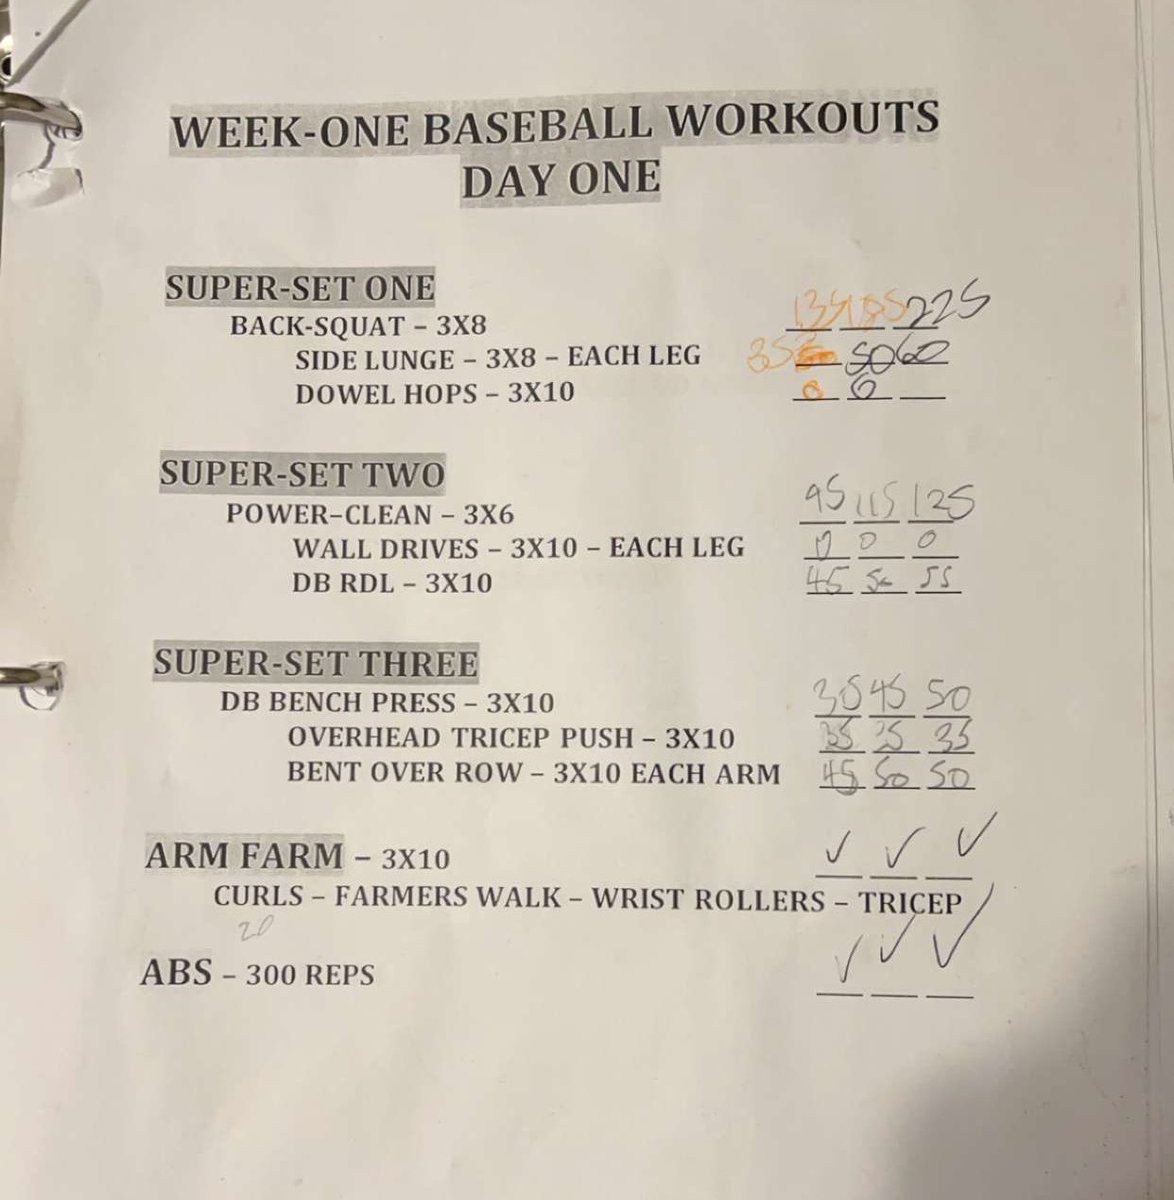 WEEK-ONE BASEBALL WORKOUTS
DAY ONE
SUPER-SET ONE
BACK-SQUAT – 3X8 135 185 225
SIDE LUNGE – 3X8 – EACH LEG 35 50 60
DOWEL HOPS – 3X10 0 0
SUPER-SET TWO
POWER-CLEAN – 3X6 95 115 125
WALL DRIVES – 3X10 – EACH LEG 0 0 0
DB RDL – 3X10 45 50 55
SUPER-SET THREE
DB BENCH PRESS – 3X10 35 45 50
OVERHEAD TRICEP PUSH – 3X10 35
BENT OVER ROW – 3X10 EACH ARM 45 50 50
ARM FARM – 3X10 ✓ ✓ ✓
CURLS – FARMERS WALK – WRIST ROLLERS – TRICEP
20
ABS – 300 REPS ✓ ✓ ✓